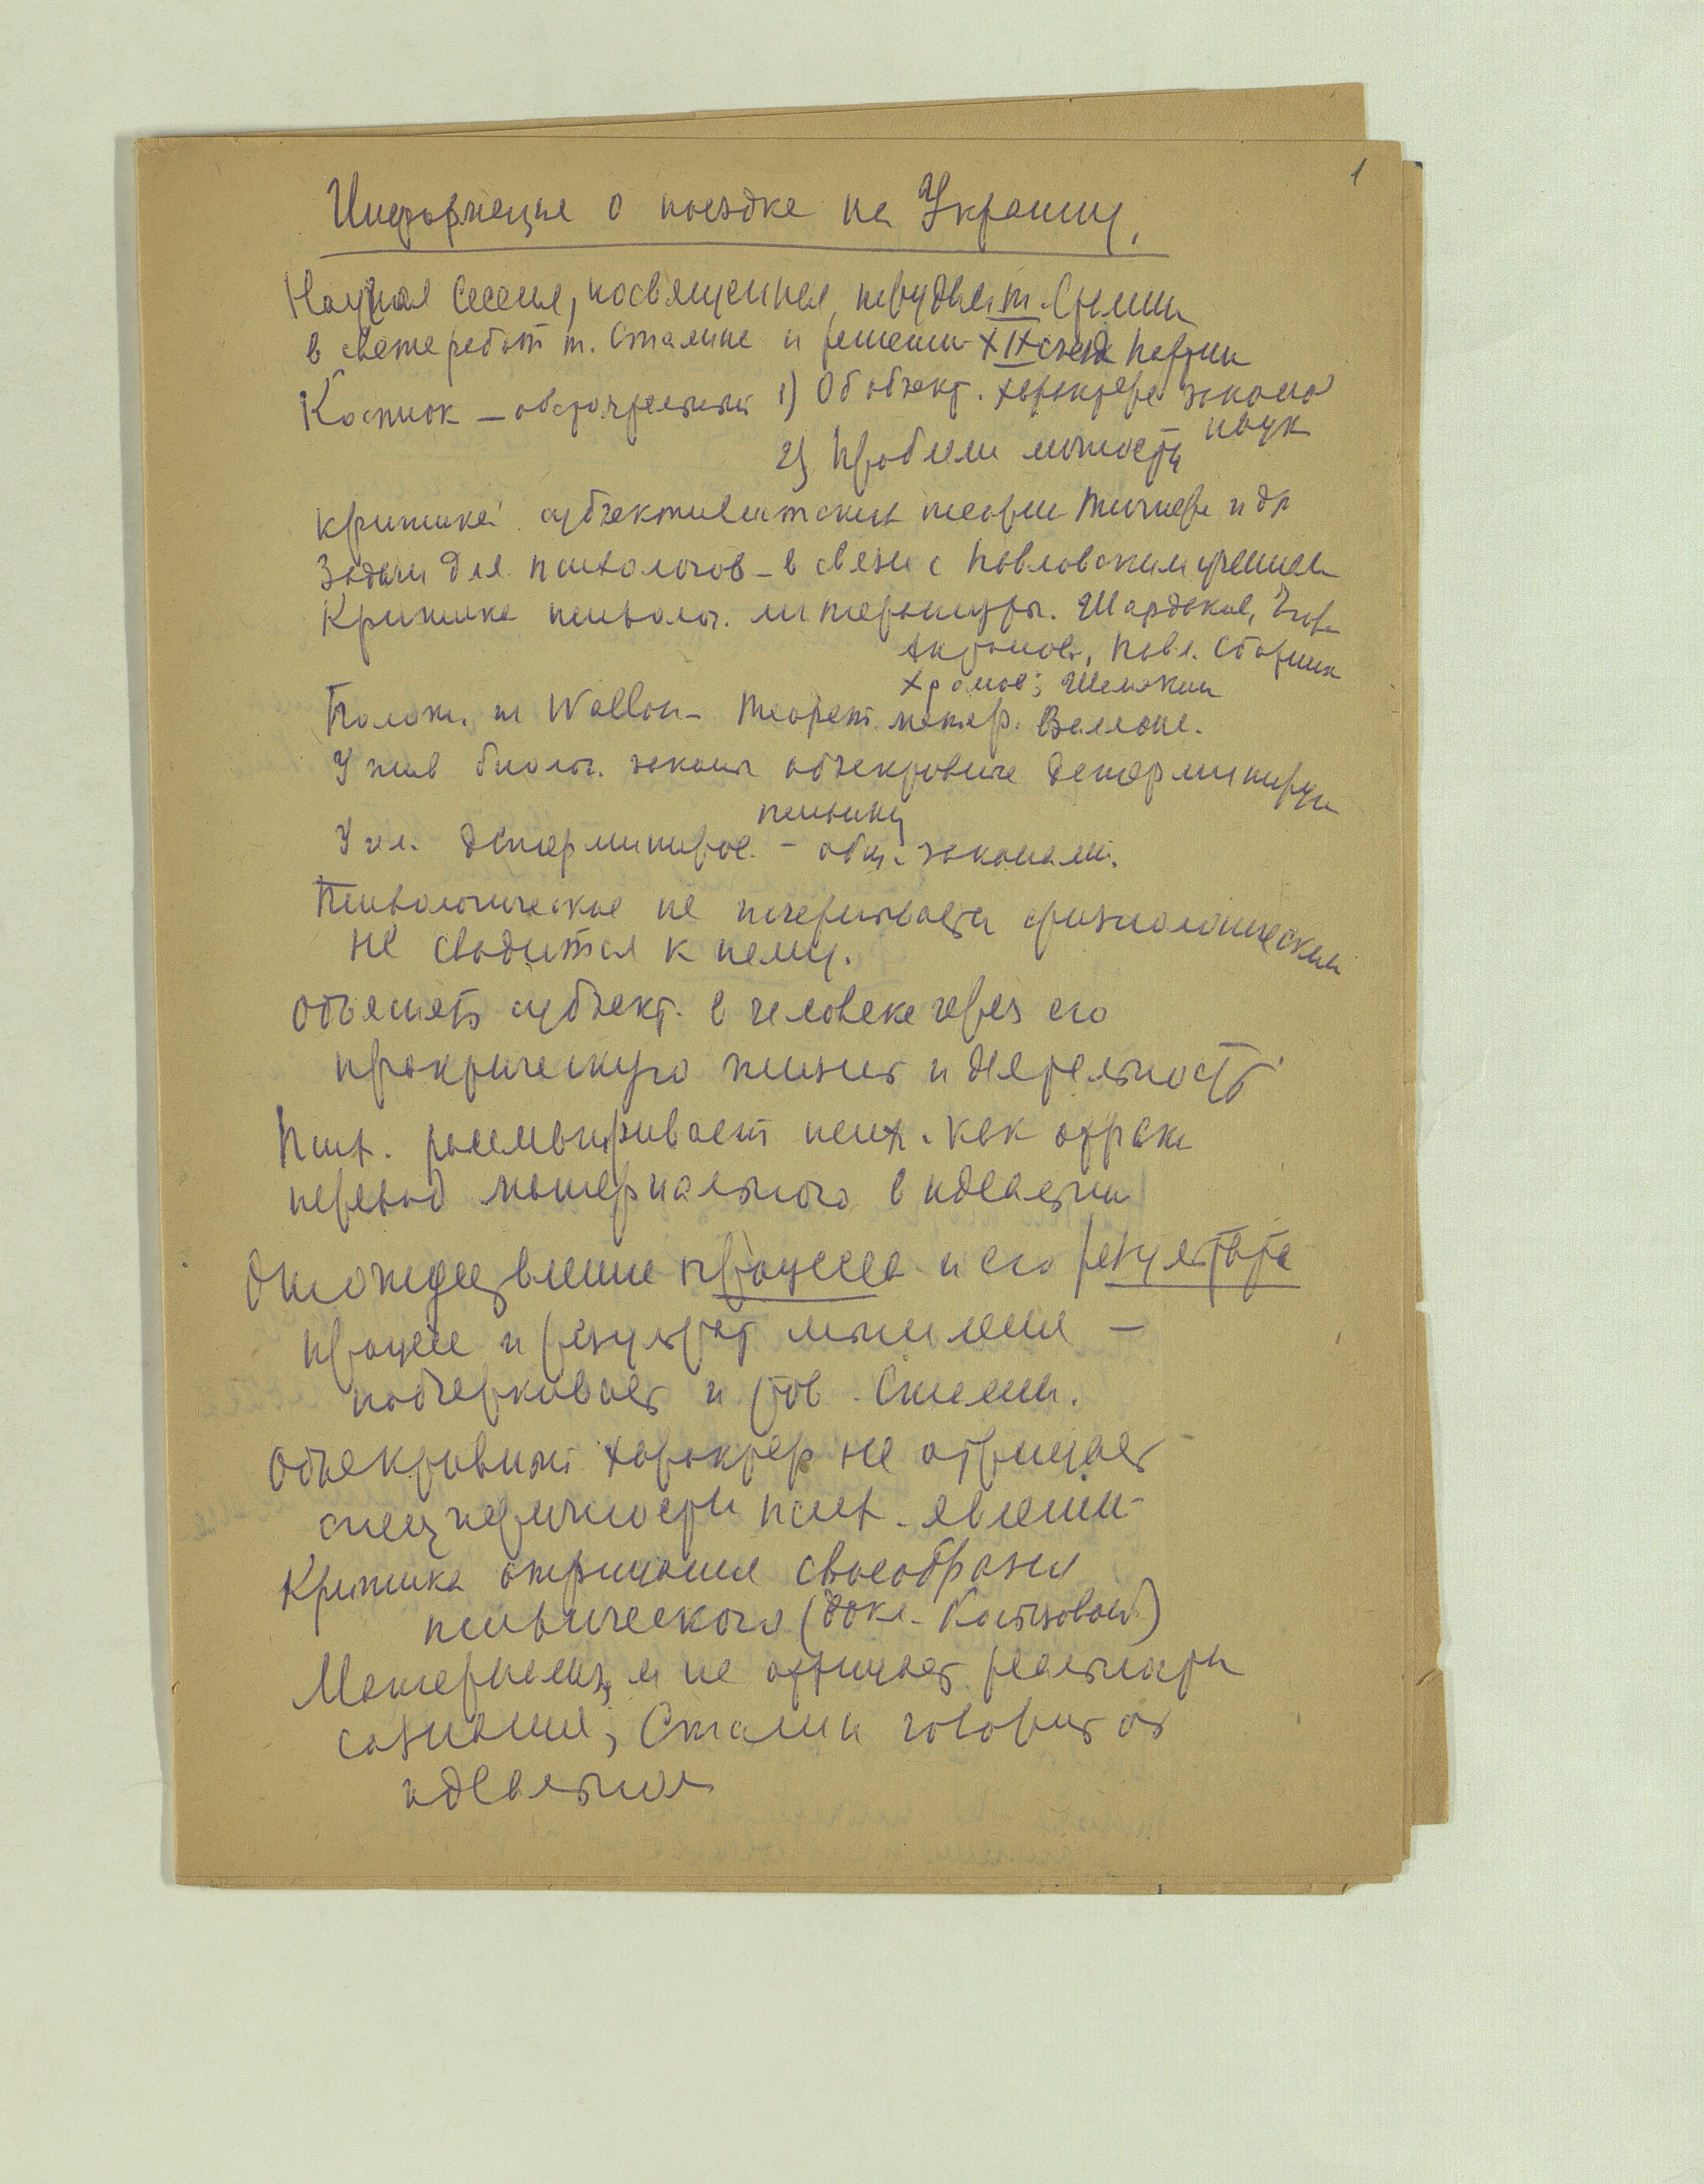 1
Информация о поездке на Украину.
Научная сессия, посвященная т. Сталин
в свете работ т. Сталина и решений XIX съезда партии
Костюк — обстоятельный 1) Об объект. характере законов
наук
2) Проблема личности
критика субъективистских теорий и др
Задачи для психологов – в связи с Павловским учением
Критика психолог. литературы. Шардаков,
Павл. сборник
Шемякин
Полож. т Wallon – теорет. матер. Валлона.
У жив биолог. законы объективные детерминируют
психику
У чел. детерминиров. – общ. законами.
Психологическое не исчерпывается физиологическим
не сводится к нему.
Объяснять субъект. в человеке через его
практическую жизнь и деятельность
Псих. рассматривает псих. как отраж
перевод материального в идеальн
Отождествление процесса и его результата
процесс и результат мышления —
подчеркивает и тов. Сталин.
Объективный характер не отрицает
специфичности псих. явлений
Критика отрицания своеобразия
психического (докл. )
Материализм не отрицает реальности
сознания; Сталин говорит об
идеальном